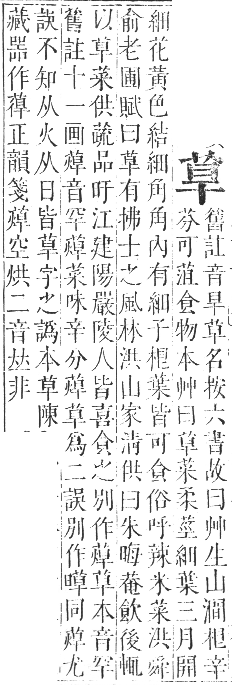 䓍
舊註音旱䓍名按六書故曰艸生山澗根辛
芬可葅食物本艸曰䓍菜柔莖細葉三月開
細花黃色結細角角內有細子根葉皆可食俗呼辣米菜洪舜
俞老圃賦曰䓍有拂士之風林洪山家清供曰朱晦菴飮後輒
以䓍菜供蔬品盱江建陽嚴陵人皆喜食之別作蔊䓍本音罕
舊註十一画蔊音罕蔊菜味辛分蔊䓍爲二誤別作同蔊尤
誤不知从火从日皆䓍字之譌本草陳
藏器作蔊正韻箋蔊空烘二音𠀤非